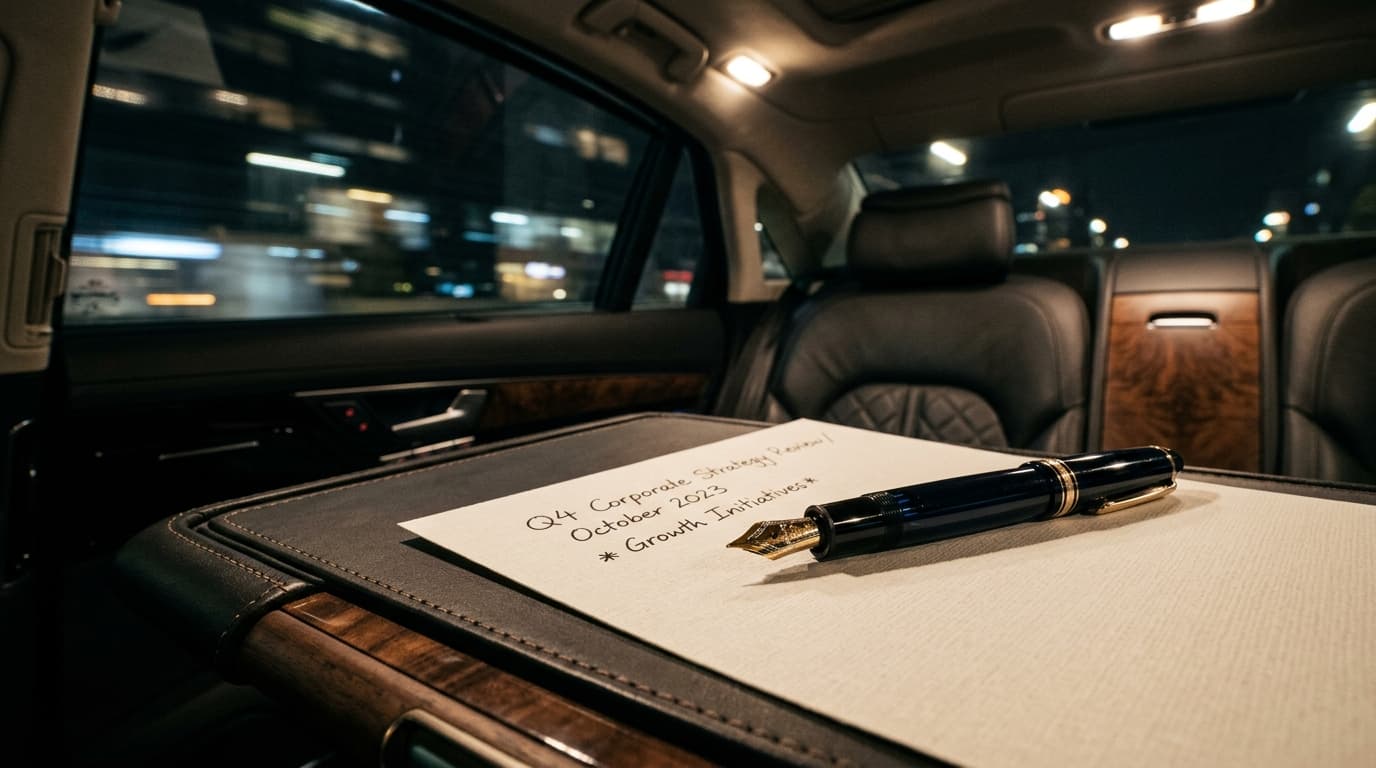 Q4 Corporate Strategy Review/
October 2023
* Growth Initiatives*